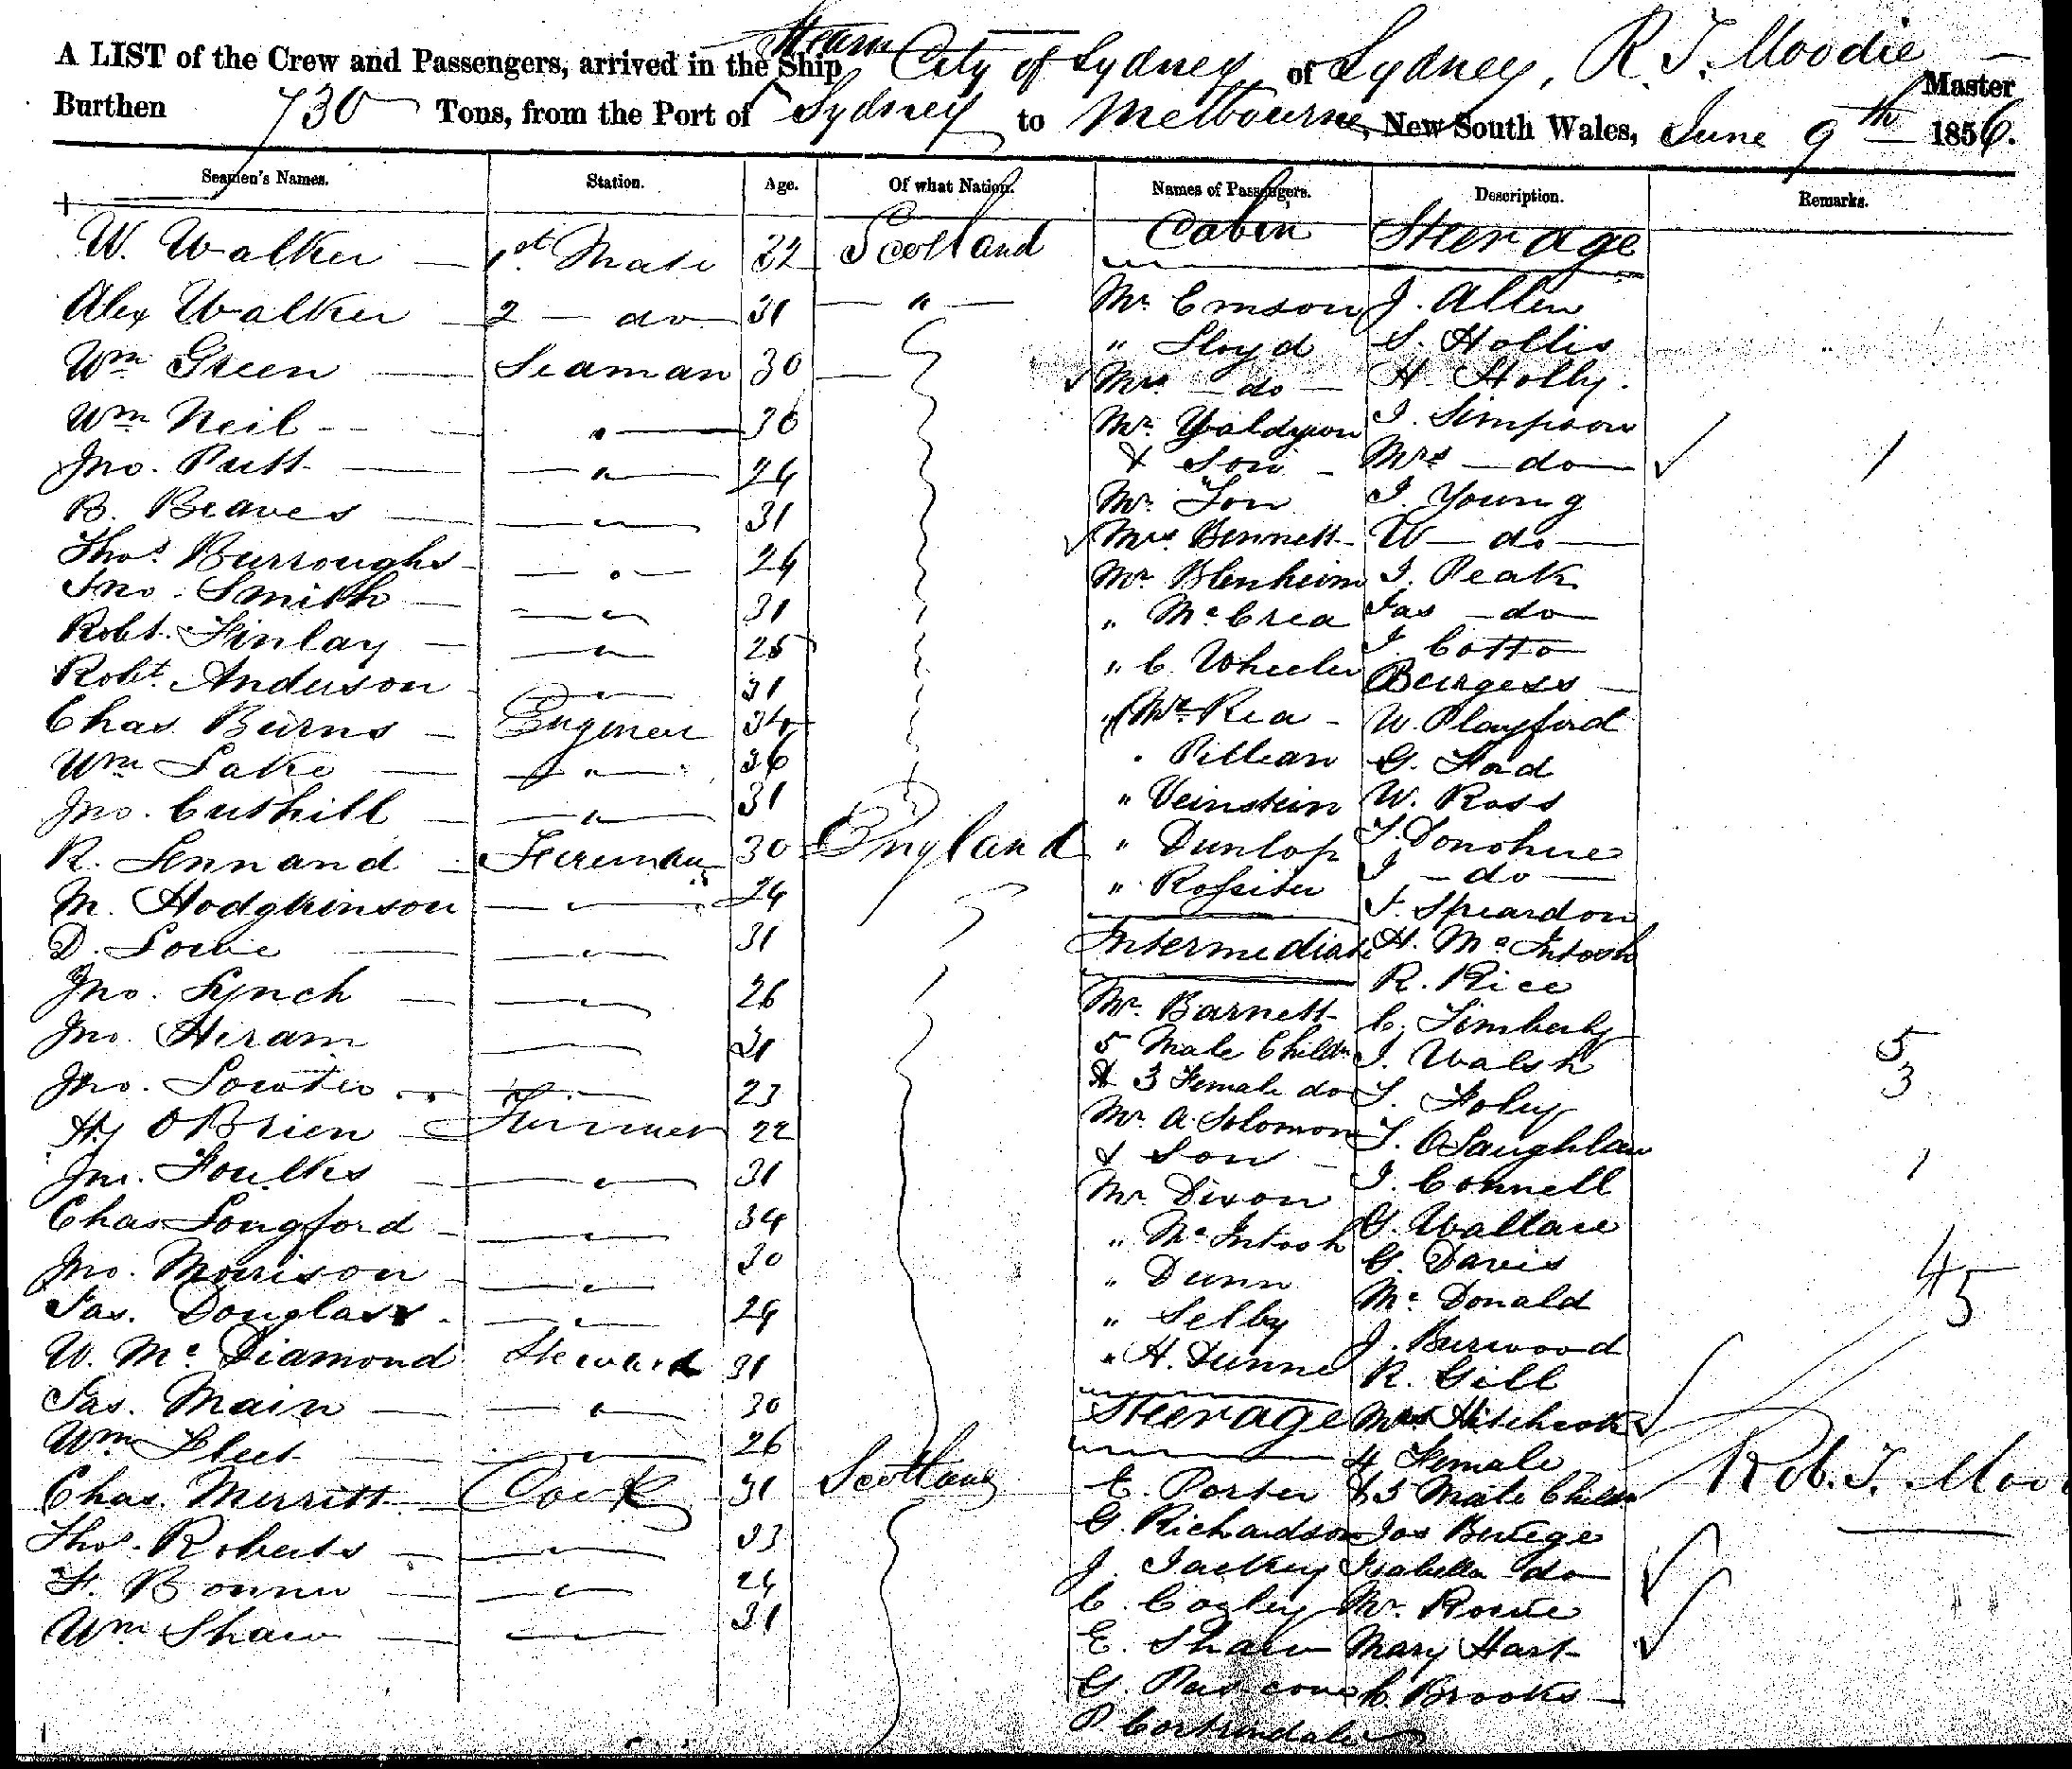 A LIST of the Crew and Passengers, arrived in the Ship Steam City of Sydney of Sydney, R. T. Moodie Master
Burthen 730 Tons, from the Port of Sydney to Melbourne, New South Wales, June 9th 1856.
Seamen's Names. Station. Age. Of what Nation. Names of Passengers. Description. Remarks.
W. Walker — 1st Mate 32 Scotland Cabin Steerage
Alex Walker — 2 — do — 31 — " — Mr Emson J. Allen
" Lloyd S. Hollis
Wm Green — Seaman 30 — Mrs — do — H. Holly.
Wm Neil - - " — 36 Mr Yaldwyn J. Simpson
& Son - Mrs — do — 1
Jno. Putt — " — 24
B. Beaves — " — 31 Mr Fon J. Young
Mrs Bennett - W — do —
Thos. Burroughs - — " — 24 Mr Blenheim J. Peak
Jno. Smith — " — 31 " McCrea Jas — do —
Robt. Finlay — " — 25 J. Cotto
" C. Wheeler Burgess —
Robt. Anderson — " — 31
Chas Burns — Engineer 34 " Mr Rea - W. Playford
Wm Lake — " — 36 " Pillean G. Ford
Jno. Cuthill — " — 31 " Veinstein W. Ross
R. Lennand — Fireman 30 England " Dunlop T. Donohue
J — do —
M. Hodgkinson — " — 24 " Rossiter J. Speardon
D. Lowe — " — 31 Intermediate H. McIntosh
R. Rice
Jno. Lynch — " — 26 Mr Barnett C. Timberly
Jno. Hiram — 31 5 Male Childn J. Walsh 5
& 3 Female do T. Foley 3
Jno. Lowter — 23
Hy OBrien Trimmer 22 Mr A. Solomon T. OLaughlan
& Son - J. Connell 1
Jno. Foulks — " — 31 Mr Dixon
Chas Longford — " — 34 " McIntosh G. Wallace
Jno. Morrison — " — 30 " Dunn G. Davis 4
Jas. Douglass — " — 24 " Selby McDonald 5
W. McDiamond Steward 31 " H. Dunne J. Burwood
R. Gill
Jas. Main — " — 30 Steerage Mrs Hitchcock
Wm Fleet — " — 26 4 Female
Chas. Merritt — Cook 31 Scotland E. Porter & 5 Male Childn Rob. T. Moo
Thos. Roberts — 33 G. Richardson Jas Burege
F. Bonner — " — 24 J. Jackey Isabella do
Wm Shaw — 31 C. Cogley Mr Rowe
E. Shaw Mary Hart
G. C. Brooks —
P